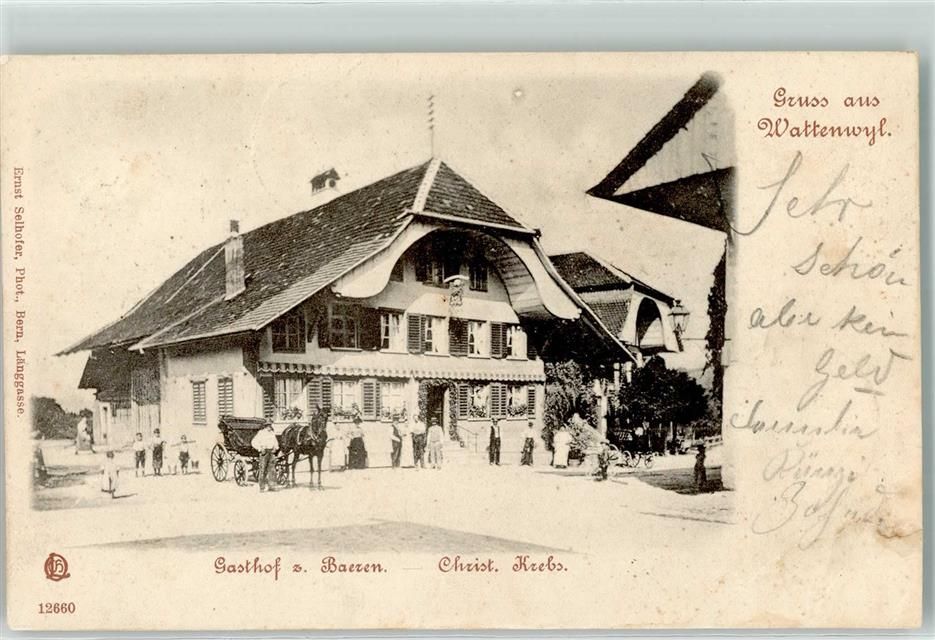 Gruss aus
Wattenwyl.
Sehr
schön
aber kein
Geld
Ernst Selhofer, Phot., Bern, Länggasse.
Gasthof z. Baeren. — Christ. Krebs.
12660